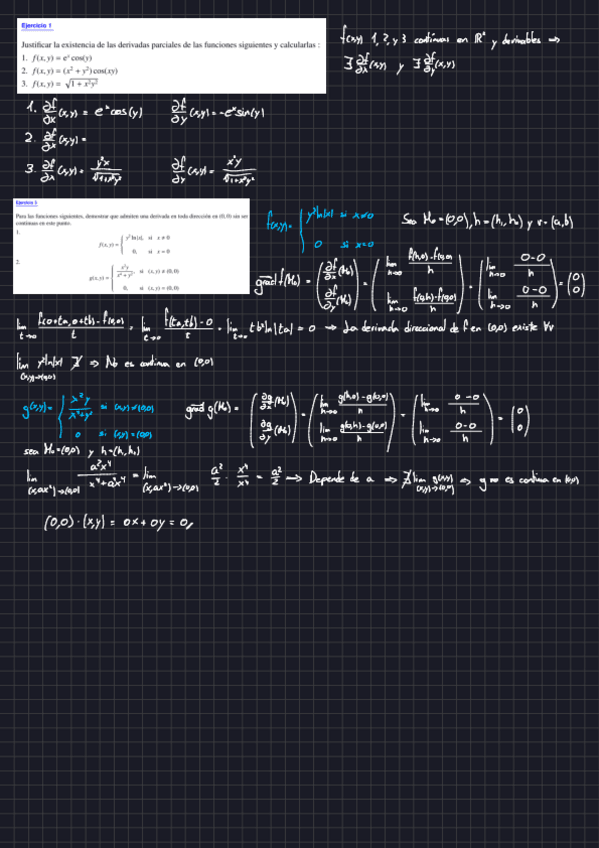 Ejercicio 1
Justificar la existencia de las derivadas parciales de las funciones siguientes y calcularlas :
1. f(x, y) = eˣ cos(y)
2. f(x, y) = (x² + y²) cos(xy)
3. f(x, y) = √(1 + x²y²)
f(x,y) 1, 2, y 3 continuas en ℝ² y derivables ⇒
∃ ∂f/∂x (x,y) y ∃ ∂f/∂y (x,y)
1. ∂f/∂x (x,y) = eˣ cos(y) ∂f/∂y (x,y) = -eˣ sin(y)
2. ∂f/∂x (x,y) =
3. ∂f/∂x (x,y) = y²x/√(1+x²y²) ∂f/∂y (x,y) = x²y/√(1+x²y²)
Para las funciones siguientes, demostrar que admiten una derivada en toda dirección en (0,0) sin ser
continuas en este punto.
1.
f(x, y) = { y² ln|x|, si x ≠ 0
0, si x = 0
2.
g(x, y) = { x²y/(x⁴ + y²), si (x, y) ≠ (0, 0)
0, si (x, y) = (0, 0)
f(x,y) = { y² ln|x| si x≠0
0 si x=0
Sea M₀=(0,0), h=(h₁, h₂) y v=(a,b)
grad f(M₀) = (∂f/∂x (M₀) ∂f/∂y (M₀)) = (lim h→0 f(h,0)-f(0,0)/h lim h→0 f(0,h)-f(0,0)/h) = (lim h→0 0-0/h lim h→0 0-0/h) = (0 0)
lim t→0 f(0+ta, 0+tb)-f(0,0)/t = lim t→0 f(ta,tb)-0/t = lim t→0 tb² ln|ta| = 0 → La derivada direccional de f en (0,0) existe ∀v
lim (x,y)→(0,0) y² ln|x| ∄ ⇒ No es continua en (0,0)
g(x,y) = { x²y/(x⁴+y²) si (x,y)≠(0,0)
0 si (x,y)=(0,0)
grad g(M₀) = (∂g/∂x (M₀) ∂g/∂y (M₀)) = (lim h→0 g(h,0)-g(0,0)/h lim h→0 g(0,h)-g(0,0)/h) = (lim h→0 0-0/h lim h→0 0-0/h) = (0 0)
sea M₀=(0,0) y h=(h₁, h₂)
lim (x,ax²)→(0,0) a²x⁴/(x⁴+a²x⁴) = lim (x,ax²)→(0,0) a²/2 · x⁴/x⁴ = a²/2 → Depende de a ⇒ ∄ lim (x,y)→(0,0) g(x,y) ⇒ g no es continua en (0,0)
(0,0)·(x,y) = 0x+0y = 0